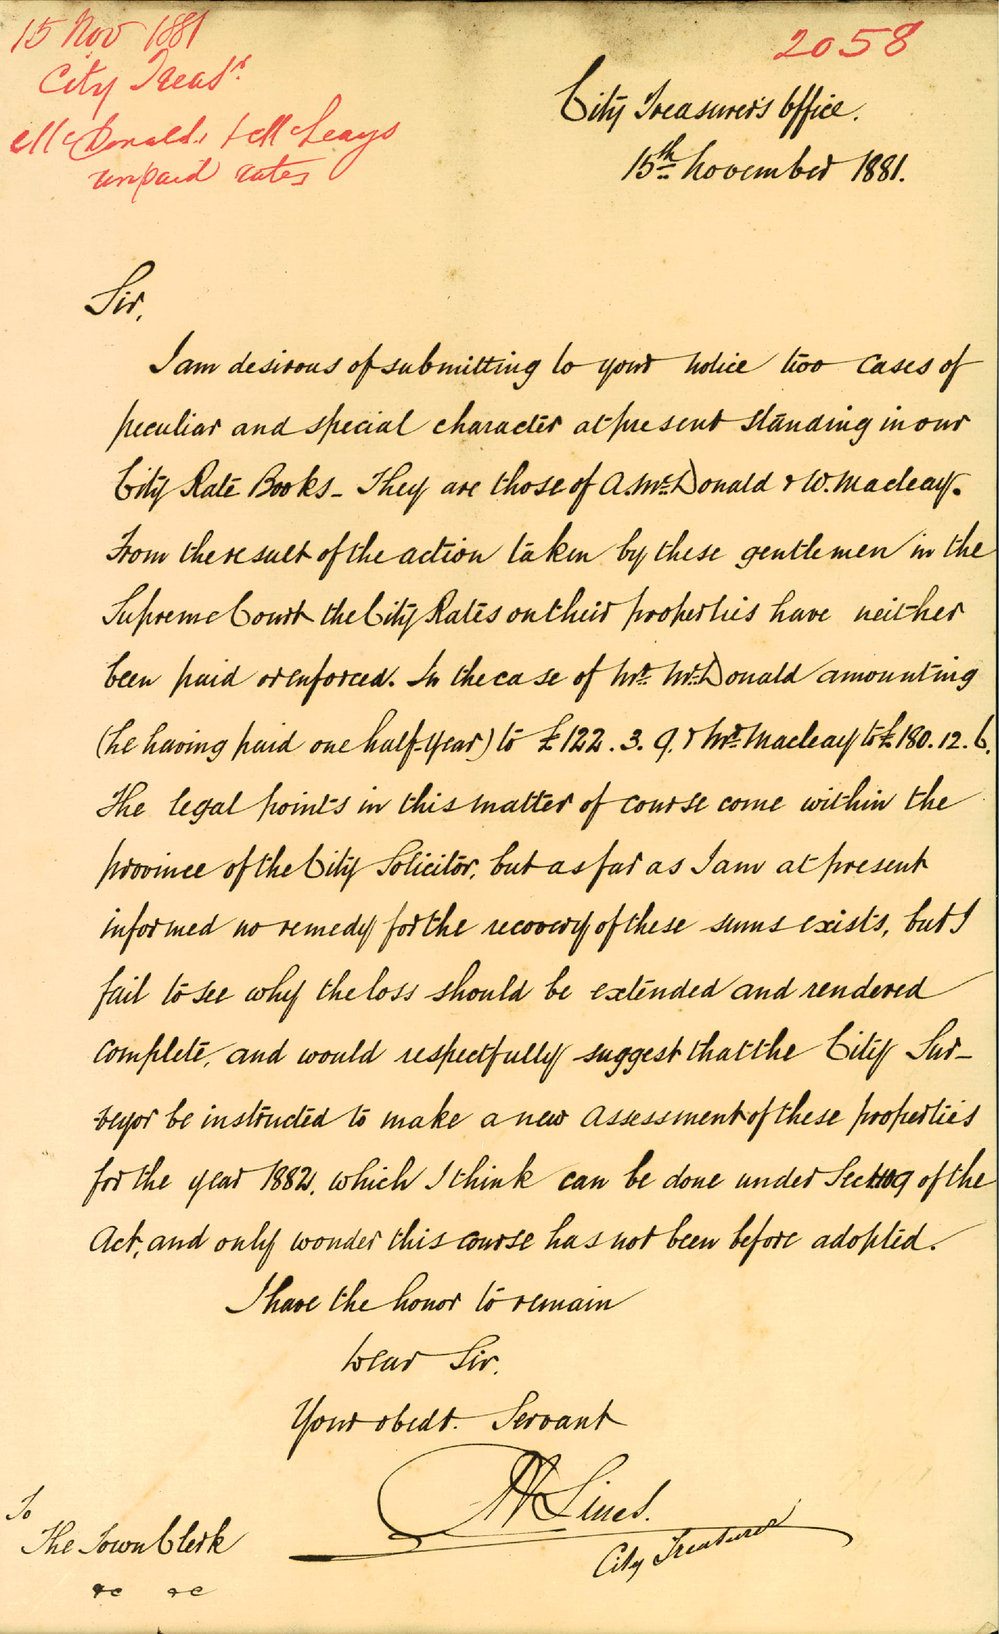 15 Nov 1881
City Treasr
McDonald & McLeays
unpaid rates
2058
City Treasurer's Office.
15th November 1881.
Sir,
I am desirous of submitting to your notice two cases of
peculiar and special character at present standing in our
City Rate Books_ They are those of A. McDonald & W. Macleay.
From the result of the action taken by these gentlemen in the
Supreme Court the City Rates on their properties have neither
been paid or enforced. In the case of Mr. McDonald amounting
(he having paid one half-year) to £122.3.9. & Mr. Macleay to £180.12.6.
The legal points in this matter of course come within the
province of the City Solicitor, but as far as I am at present
informed no remedy for the recovery of these sums exists, but I
fail to see why the loss should be extended and rendered
complete, and would respectfully suggest that the City Sur-
veyor be instructed to make a new assessment of these properties
for the year 1882, which I think can be done under Sec 109 of the
Act, and only wonder this course has not been before adopted.
I have the honor to remain
Dear Sir.
Your obedt. Servant
Lines.
City Treasurer
To
The Town Clerk
&c &c